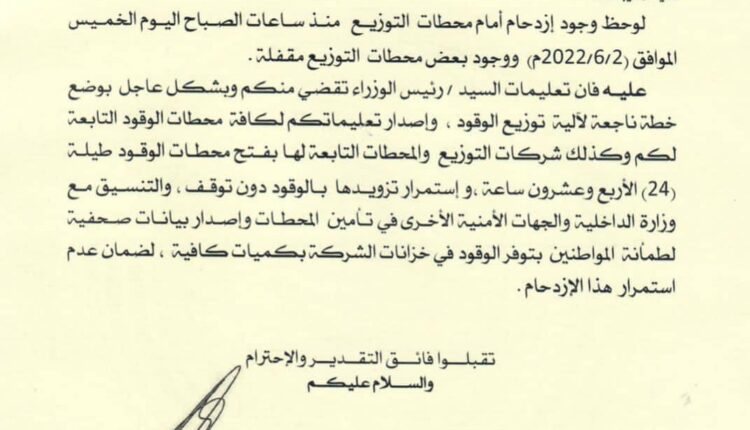 لوحظ وجود إزدحام أمام محطات التوزيع منذ ساعات الصباح اليوم الخميس
الموافق (2022/6/2م) ووجود بعض محطات التوزيع مقفلة .
عليه فان تعليمات السيد / رئيس الوزراء تقضي منكم وبشكل عاجل بوضع
خطة ناجعة لآلية توزيع الوقود ، وإصدار تعليماتكم لكافة محطات الوقود التابعة
لكم وكذلك شركات التوزيع والمحطات التابعة لها بفتح محطات الوقود طيلة
(24) الأربع وعشرون ساعة ،و إستمرار تزويدها بالوقود دون توقف ، والتنسيق مع
وزارة الداخلية والجهات الأمنية الأخرى في تأمين المحطات وإصدار بيانات صحفية
لطمأنة المواطنين بتوفر الوقود في خزانات الشركة بكميات كافية ، لضمان عدم
استمرار هذا الإزدحام .
تقبلوا فائق التقدير والإحترام
والسلام عليكم